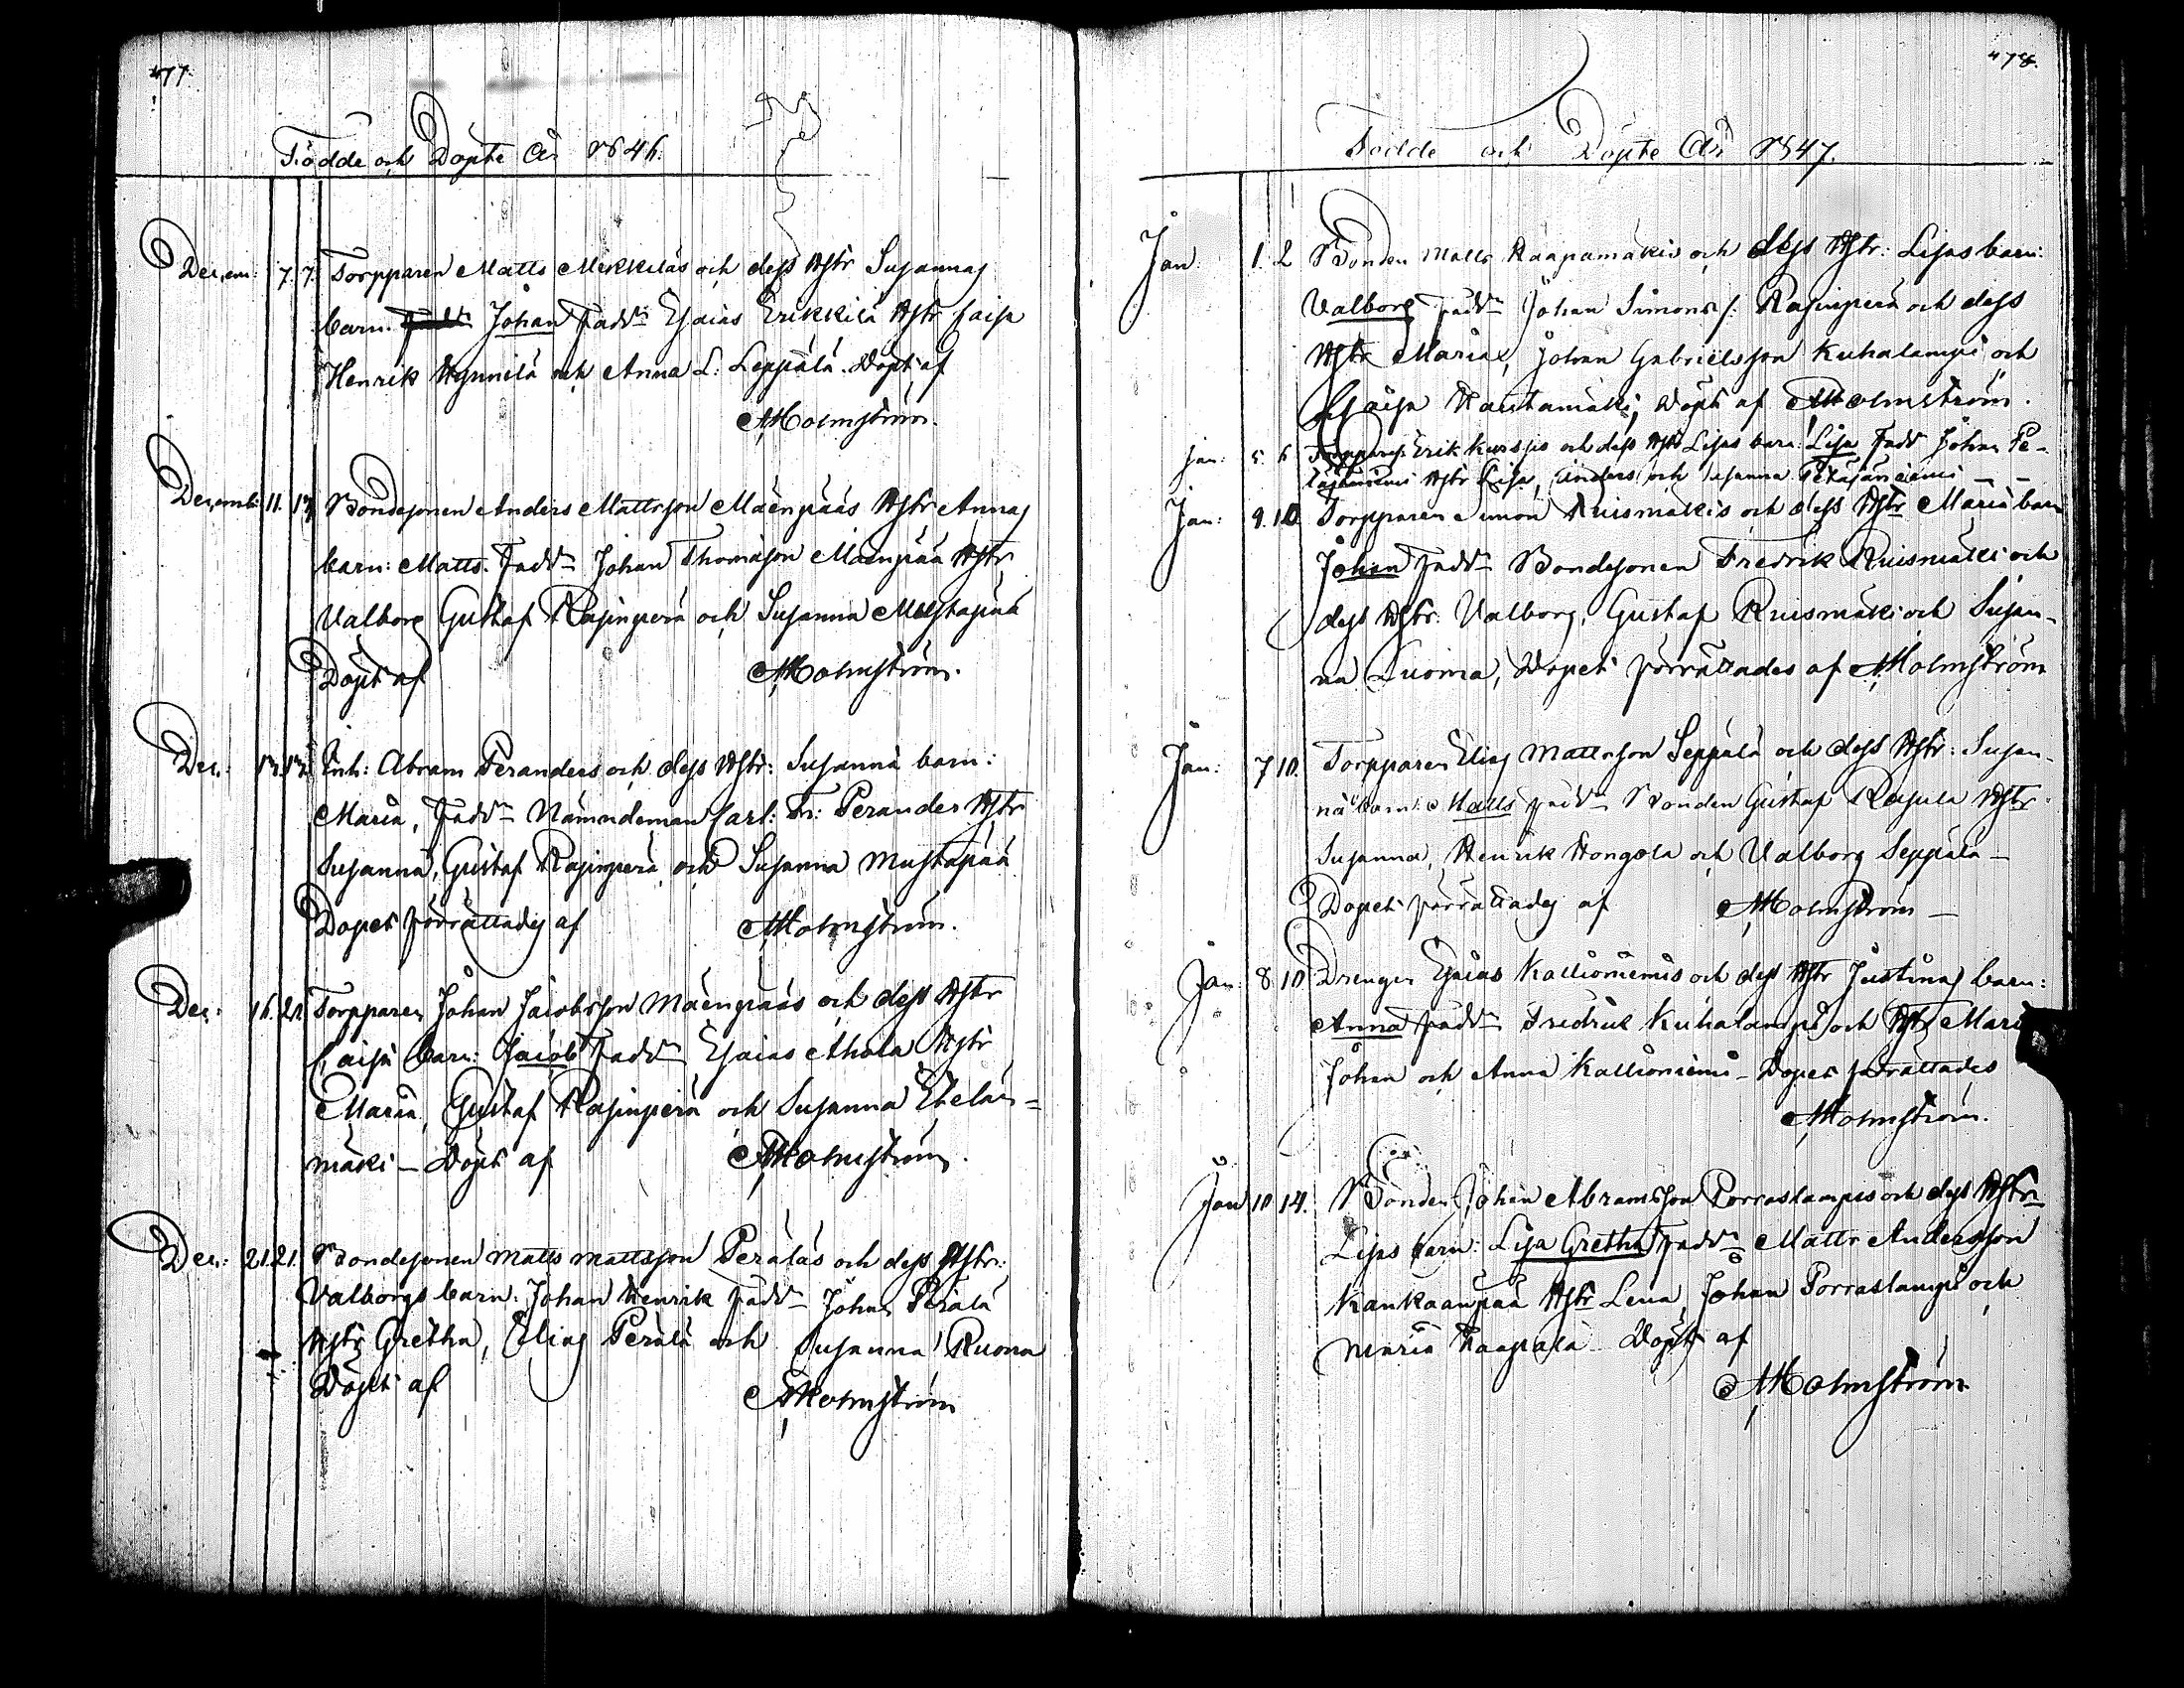 477.
Födde och Döpte År 1846.
Decem: 7. 7. Torpparen Matts Mikkiläs och dess Hstr Susannas
barn. Johan Fadd: Esaias Erikkilä Hstr Caisa
Henrik Hynnilä och Anna L: Leppälä. Döpt af
A Holmström.
Decemb: 11. 13 Bondesonen Anders Mattsson Mäenpääs Hstr Annas
barn: Matts. Fadd: Johan Thomasson Mäenpää Hstr
Valborg Gustaf Rajinperä och Susanna Mustapää
Döpt af A Holmström.
Dec: 13. 13. Inh: Abram Peranders och dess Hstr: Susanna barn:
Maria, Fadd: Nämndeman Carl: Fr: Perander Hstr
Susanna, Gustaf Rajinperä och Susanna Mustapää
Dopet förrättades af A Holmström.
Dec: 16. 21. Torpparen Johan Jacobsson Mäenpääs och dess Hstr
Caisa barn: Jacob Fadd: Esaias Ahola Hstr
Maria, Gustaf Rajinperä och Susanna Etelä-
mäki – Döpt af A Holmström.
Dec: 21. 21. Bondesonen Matts Mattsson Peräläs och dess Hstr:
Valborgs barn: Johan Henrik Fadd: Johan Perälä
Hstr Gretha, Elias Perälä och Susanna Ruona
Döpt af A Holmström
478.
Födde och Döpte År 1847.
Jan: 1. 2 Bonden Matts Haapamäkis och dess Hstr: Lisas barn:
Valborg Fadd: Johan Simonss: Rajinperä och dess
Hstr Maria, Johan Gabrielsson Kuhalampi och
Caisa Hautamäki, Döpt af A Holmström.
Jan: 5. 6 Torpparen Erik Kursjis och dess Hstr Lisas barn: Lisa Fadd Johan Pe-
täjäniemi Hstr Lisa, Anders och Susanna Petäjäniemi –
Jan: 9. 10 Torpparen Simon Ruismäkis och dess Hstr Maria barn
Johan Fadd: Bondesonen Fredrik Ruismäki och
dess Hstr: Valborg, Gustaf Ruismäki och Susan-
na Luoma, Dopet förrättades af A Holmström
Jan: 7 10. Torpparen Elias Mattsson Seppälä och dess Hstr: Susan-
na barn: Matts Fadd: Bonden Gustaf Rajula Hstr:
Susanna, Henrik Hongola och Valborg Seppälä –
Dopet förrättades af A Holmström –
Jan: 8. 10 Drengen Esaias Kallioniemis och dess Hstr Justinas barn:
Anna Fadd: Fredrik Kuhalampi och Hstr Maria
Johan och Anna Kallioniemi – Dopet förrättades
A Holmström.
Jan 10 14. Bonden Johan Abramsson Porraslampis och dess Hstr:
Lisas barn: Lisa Gretha Fadd: Matts Andersson
Kankaanpää Hstr Lena, Johan Porraslampi och
Maria Haapala Döpt af
A Holmström